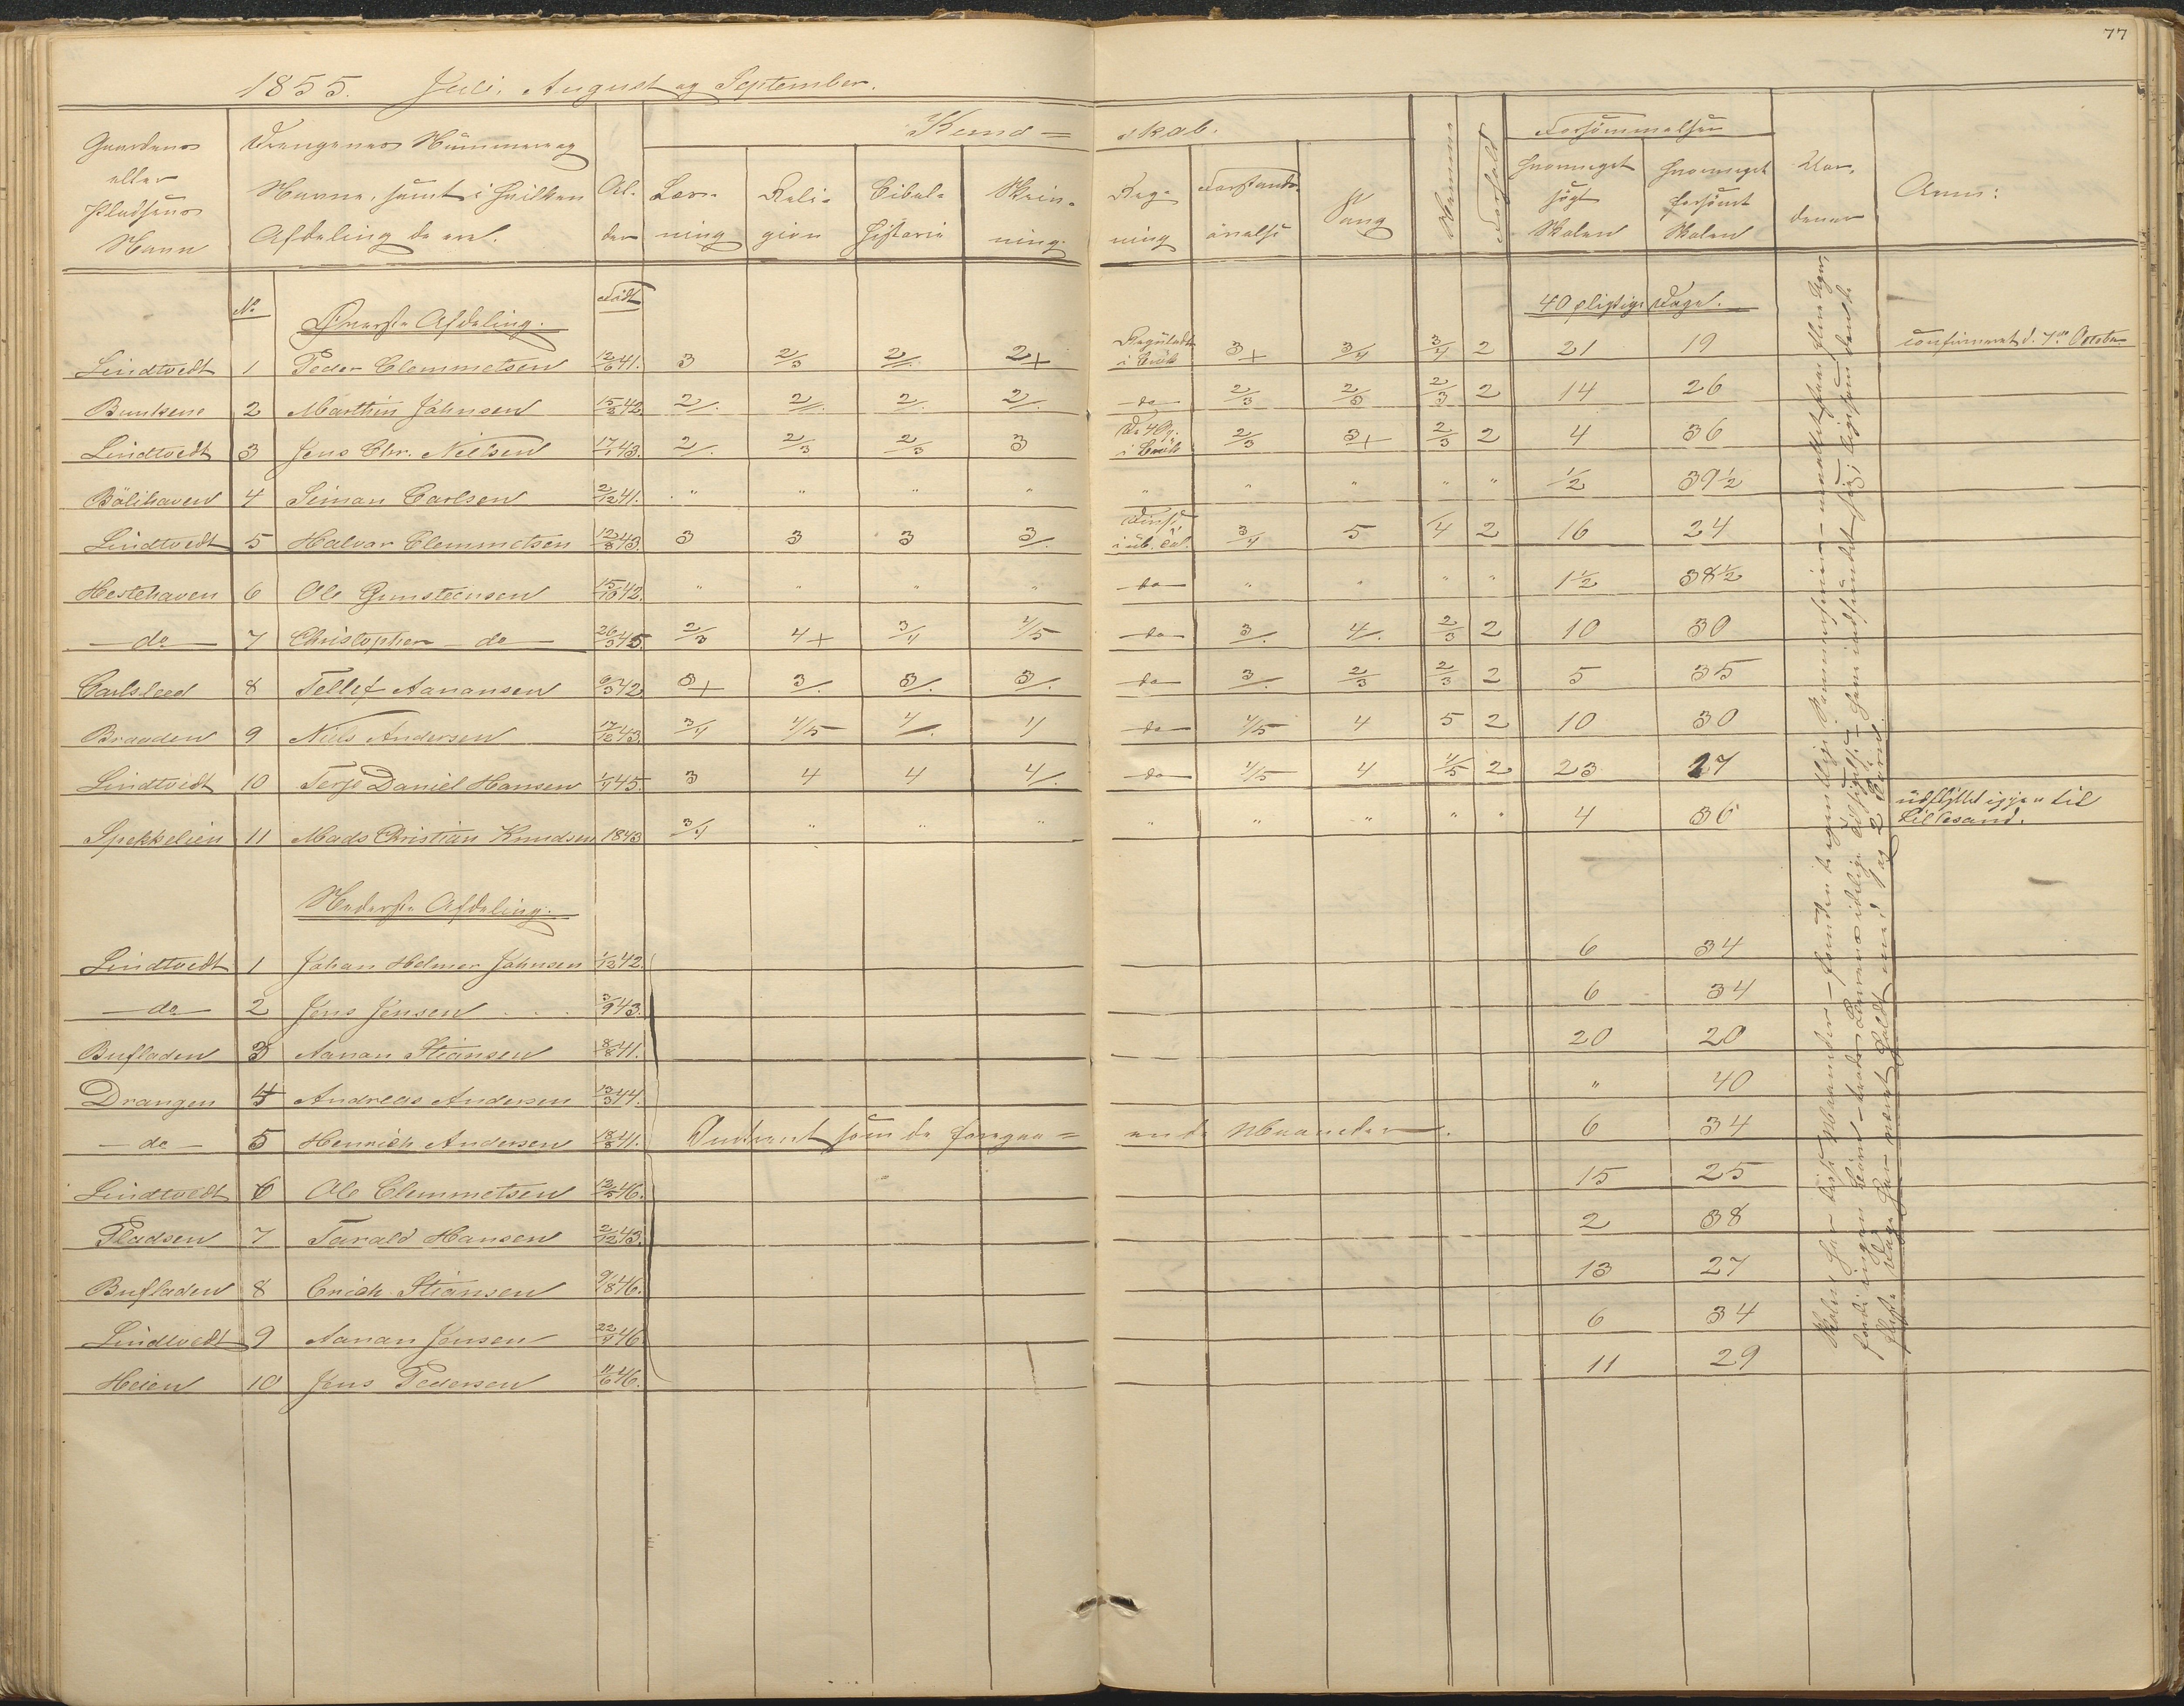 77
1855. Juli, August og September.
Gaardens eller Pladsens Navn | Drengenes Nummer og Navne, samt i hvilken Afdeling de ere. | Al- der | Kund= skab. | Forsømmelser | Anm:
Læs- ning | Reli- gion | Bibel- historie | Skriv- ning. | Reg- ning | Forstands- øvelse | Sang | Nemme | Forhold | hvormeget søgt Skolen | hvormeget forsømt Skolen
No | Øverste Afdeling. | Født | 40 pligtige Dage.
Lindtvedt 1 Peder Clemmetsen 12/6 41. 3 2/3 2/. 2+ Reguladetri i Brøk 3+ 3/4 3/4 2 21 19 confirmeret d. 7de October
Bunkene 2 Marthin Johnsen 15/3 42 2/. 2/. 2/. 2/. do 2/3 2/3 2/3 2 14 26
Lindtvedt 3 Jens Chr. Nielsen 17/1 43. 2/. 2/3 2/3 3 i Brøk 2/3 3+ 2/3 2 4 36
Bölihaven 4 Simon Carlsen 2/12 41. " " " " " " " " " 1/2 39 1/2
Lindtvedt 5 Halvor Clemmetsen 12/8 43. 3 3 3 3/. 3/4 5 4 2 16 24
Hestehaven 6 Ole Gunsteensen 15/10 42. " " " " do " " " " 1 1/2 38 1/2
do 7 Christopher do 26/3 45. 2/3 4+ 3/4 4/5 do 3/. 4/. 2/3 2 10 30
Carlsleed 8 Tellef Aanonsen 9/3 42 3+ 3/. 3/. 3/. do 3/. 2/3 2/3 2 5 35
Braaden 9 Niels Andersen 17/12 43. 3/4 4/5 4/. 4 do 4/5 4 5 2 10 30
Lindtvedt 10 Terje Daniel Hansen 1/4 45. 3 4 4 4/. do 4/5 4 4/5 2 23 27
Spekkelien 11 Mads Christian Knudsen 1843 3/4 " " " " " " " " 4 36 udflyttet igjen til
Lillesand.
Nederste Afdeling.
Lindtvedt 1 Johan Helmer Johnsen 1/12 42. 6 34
do 2 Jens Jensen 3/9 43. 6 34
Bufladen 3 Aanon Stiansen 8/8 41. 20 20
Drangen 4 Andreas Andersen 13/3 44. " 40
do 5 Henrich Andersen 18/8 41. Omtrent som de foregaa= ende Maaneder. 6 34
Lindtvedt 6 Ole Clemmetsen 12/5 46. 15 25
Pladsen 7 Tarald Hansen 2/12 43. 2 38
Bufladen 8 Erich Stiansen 9/8 46. 13 27
Lindtvedt 9 Aanon Jensen 22/4 46 6 34
Heien 10 Jens Pedersen 11/6 46. 11 29